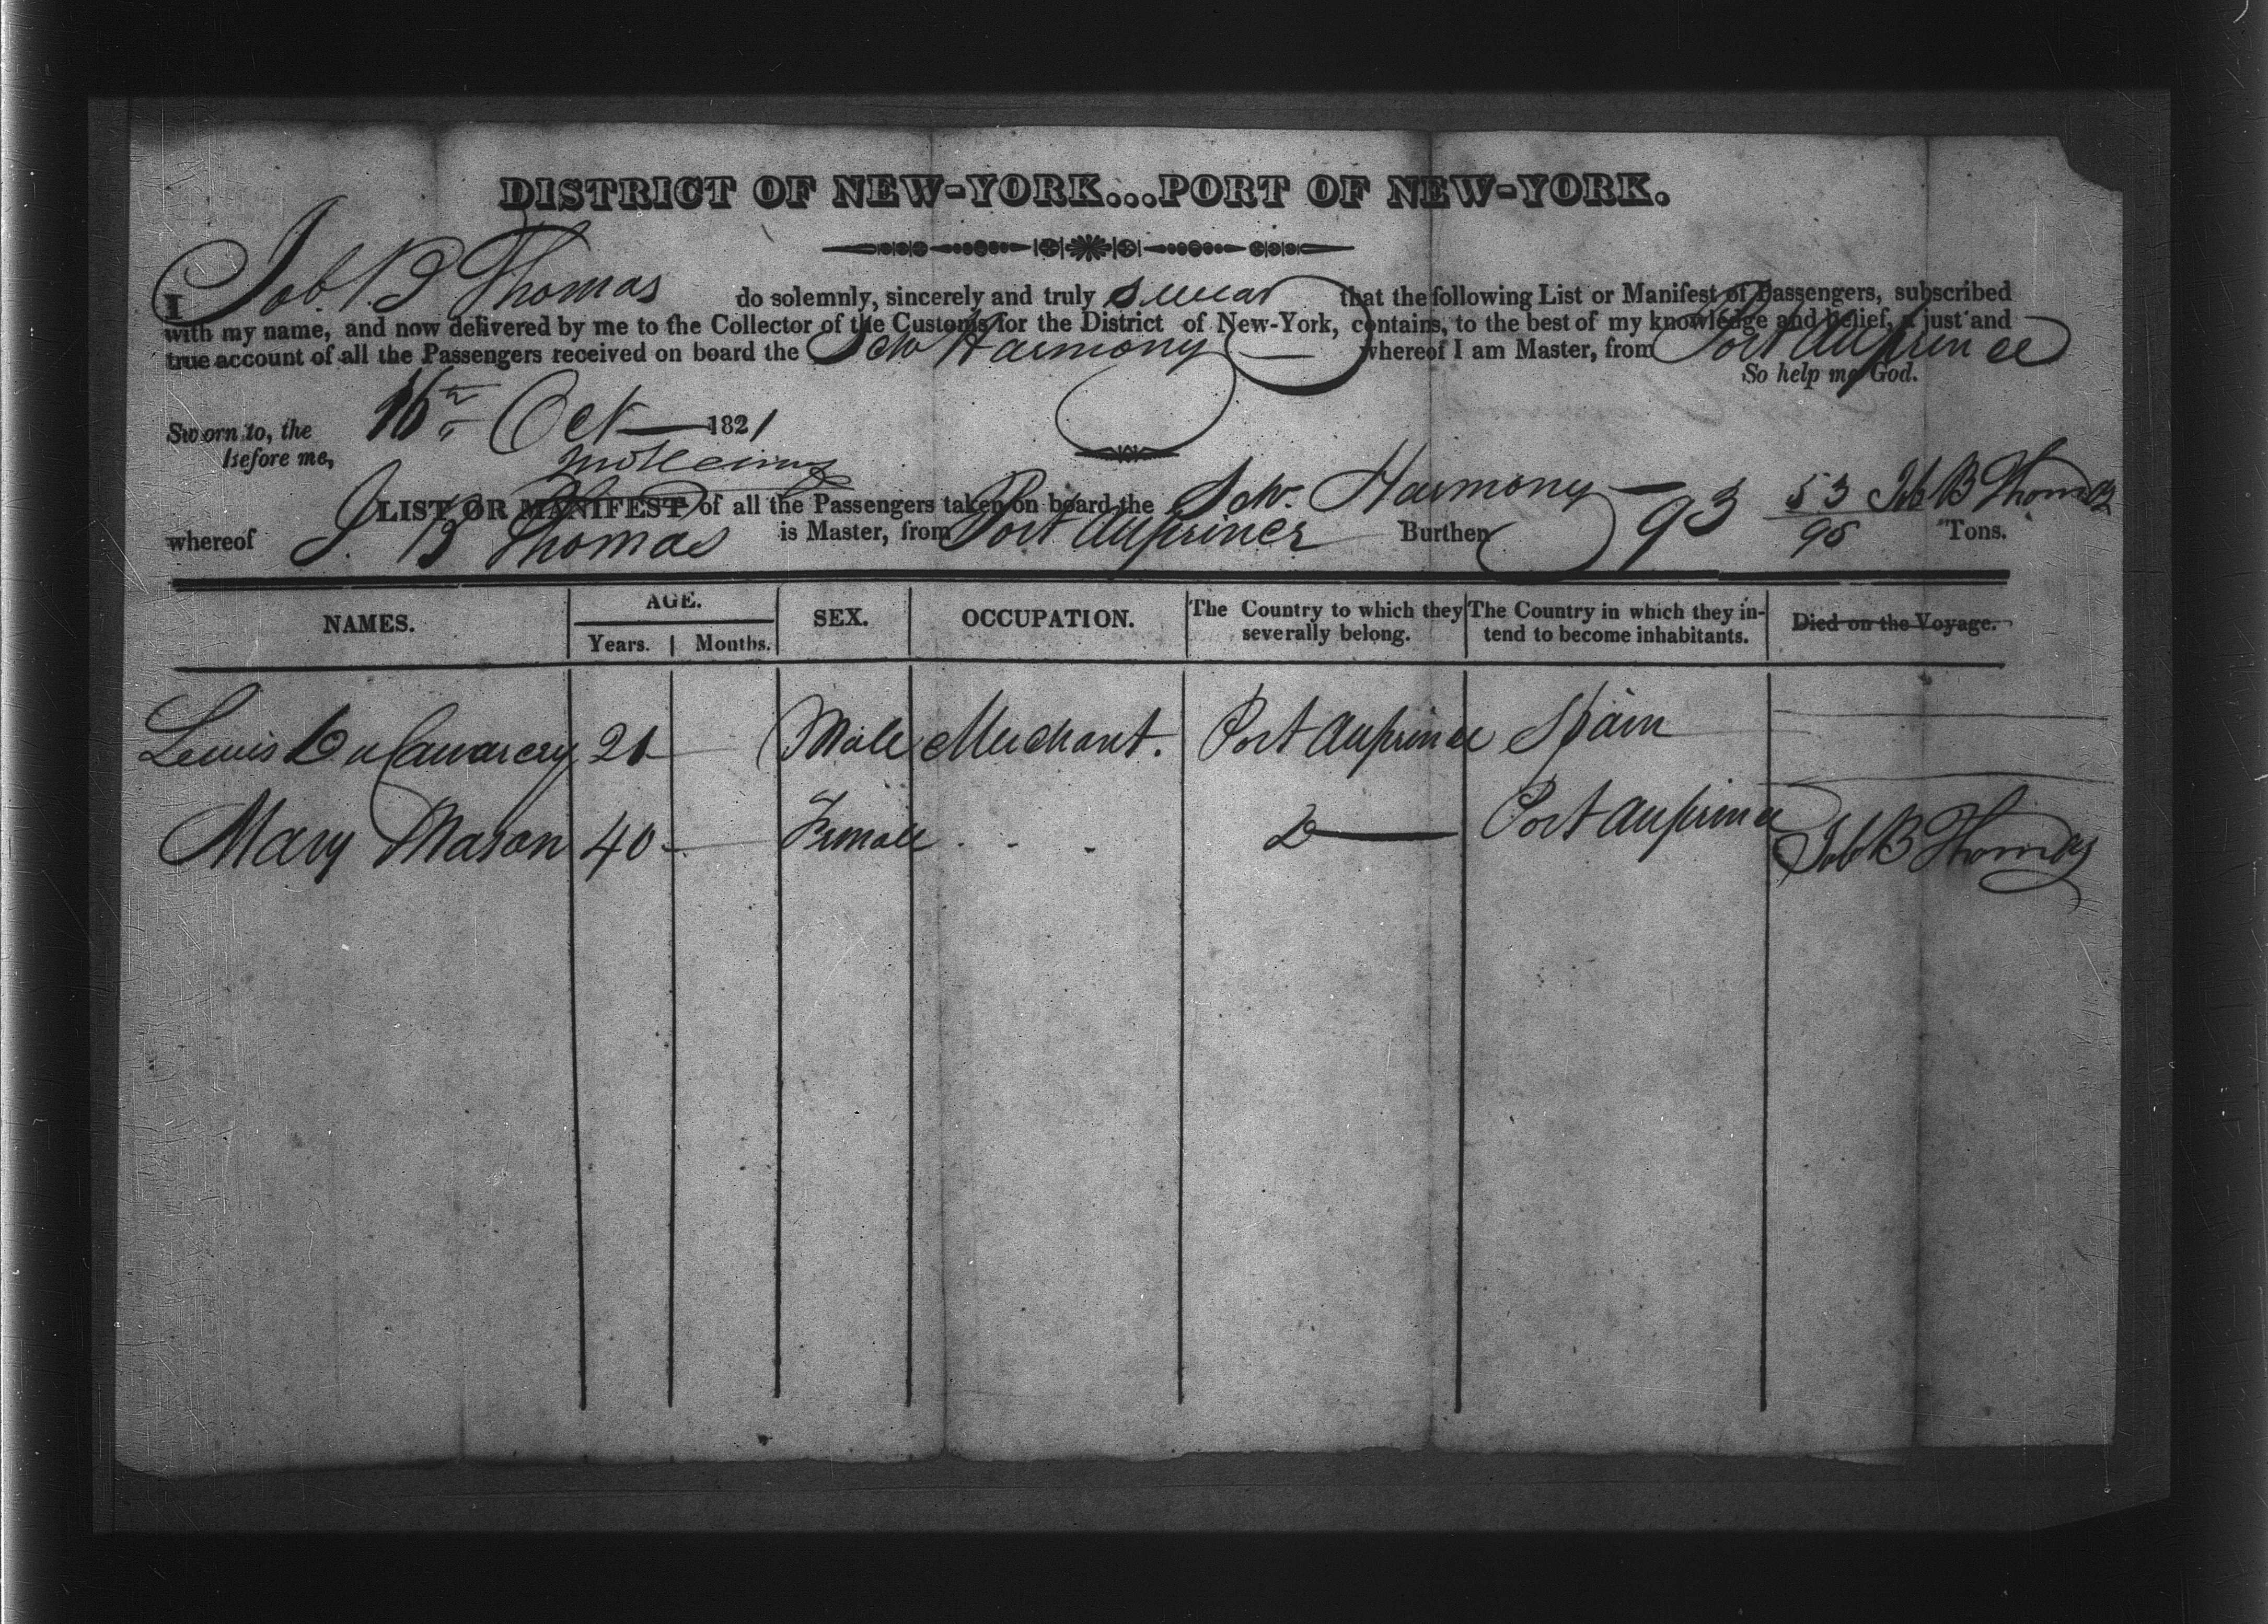 DISTRICT OF NEW-YORK...PORT OF NEW-YORK.
I Job. B Thomas do solemnly, sincerely and truly swear that the following List or Manifest of Passengers, subscribed
with my name, and now delivered by me to the Collector of the Customs for the District of New-York, contains, to the best of my knowledge and belief, a just and
true account of all the Passengers received on board the Schr Harmony whereof I am Master, from Port au prince
So help me God.
Sworn to, the 16th Oct 1821
before me,
LIST OR MANIFEST of all the Passengers taken on board the Schr. Harmony Job B Thomas
whereof J. B Thomas is Master, from Port au prince Burthen 93 53/95 Tons.
NAMES. AGE. SEX. OCCUPATION. The Country to which they severally belong. The Country in which they intend to become inhabitants. Died on the Voyage.
Years. Months.
Lewis 21 Male Merchant. Port au prince Spain
Mary Mason 40 Female Do Port au prince Job B Thomas